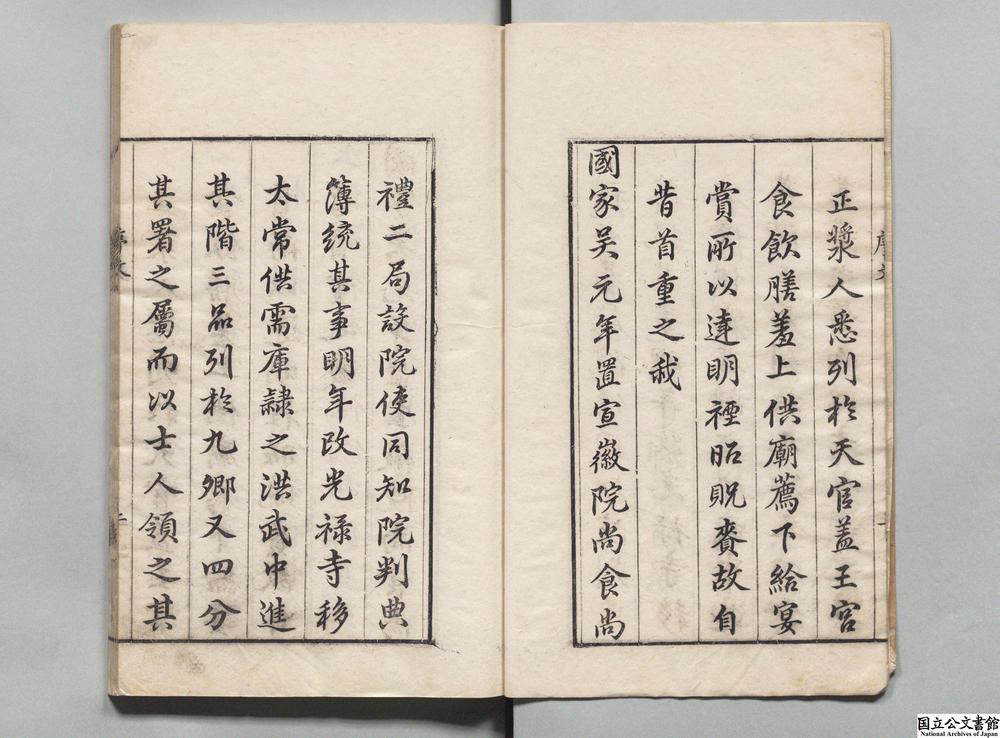 正漿人悉列於天官盖王宮
食飲膳羞上供廟薦下給宴
賞所以達明禋昭貺賚故自
昔首重之哉
國家吴元年置宣徽院尚食尚
禮二局設院使同知院判典
簿統其事明年改光禄寺移
太常供需庫隷之洪武中進
其階三品列於九卿又四分
其署之屬而以士人領之其
序文
国立公文書館
National Archives of Japan